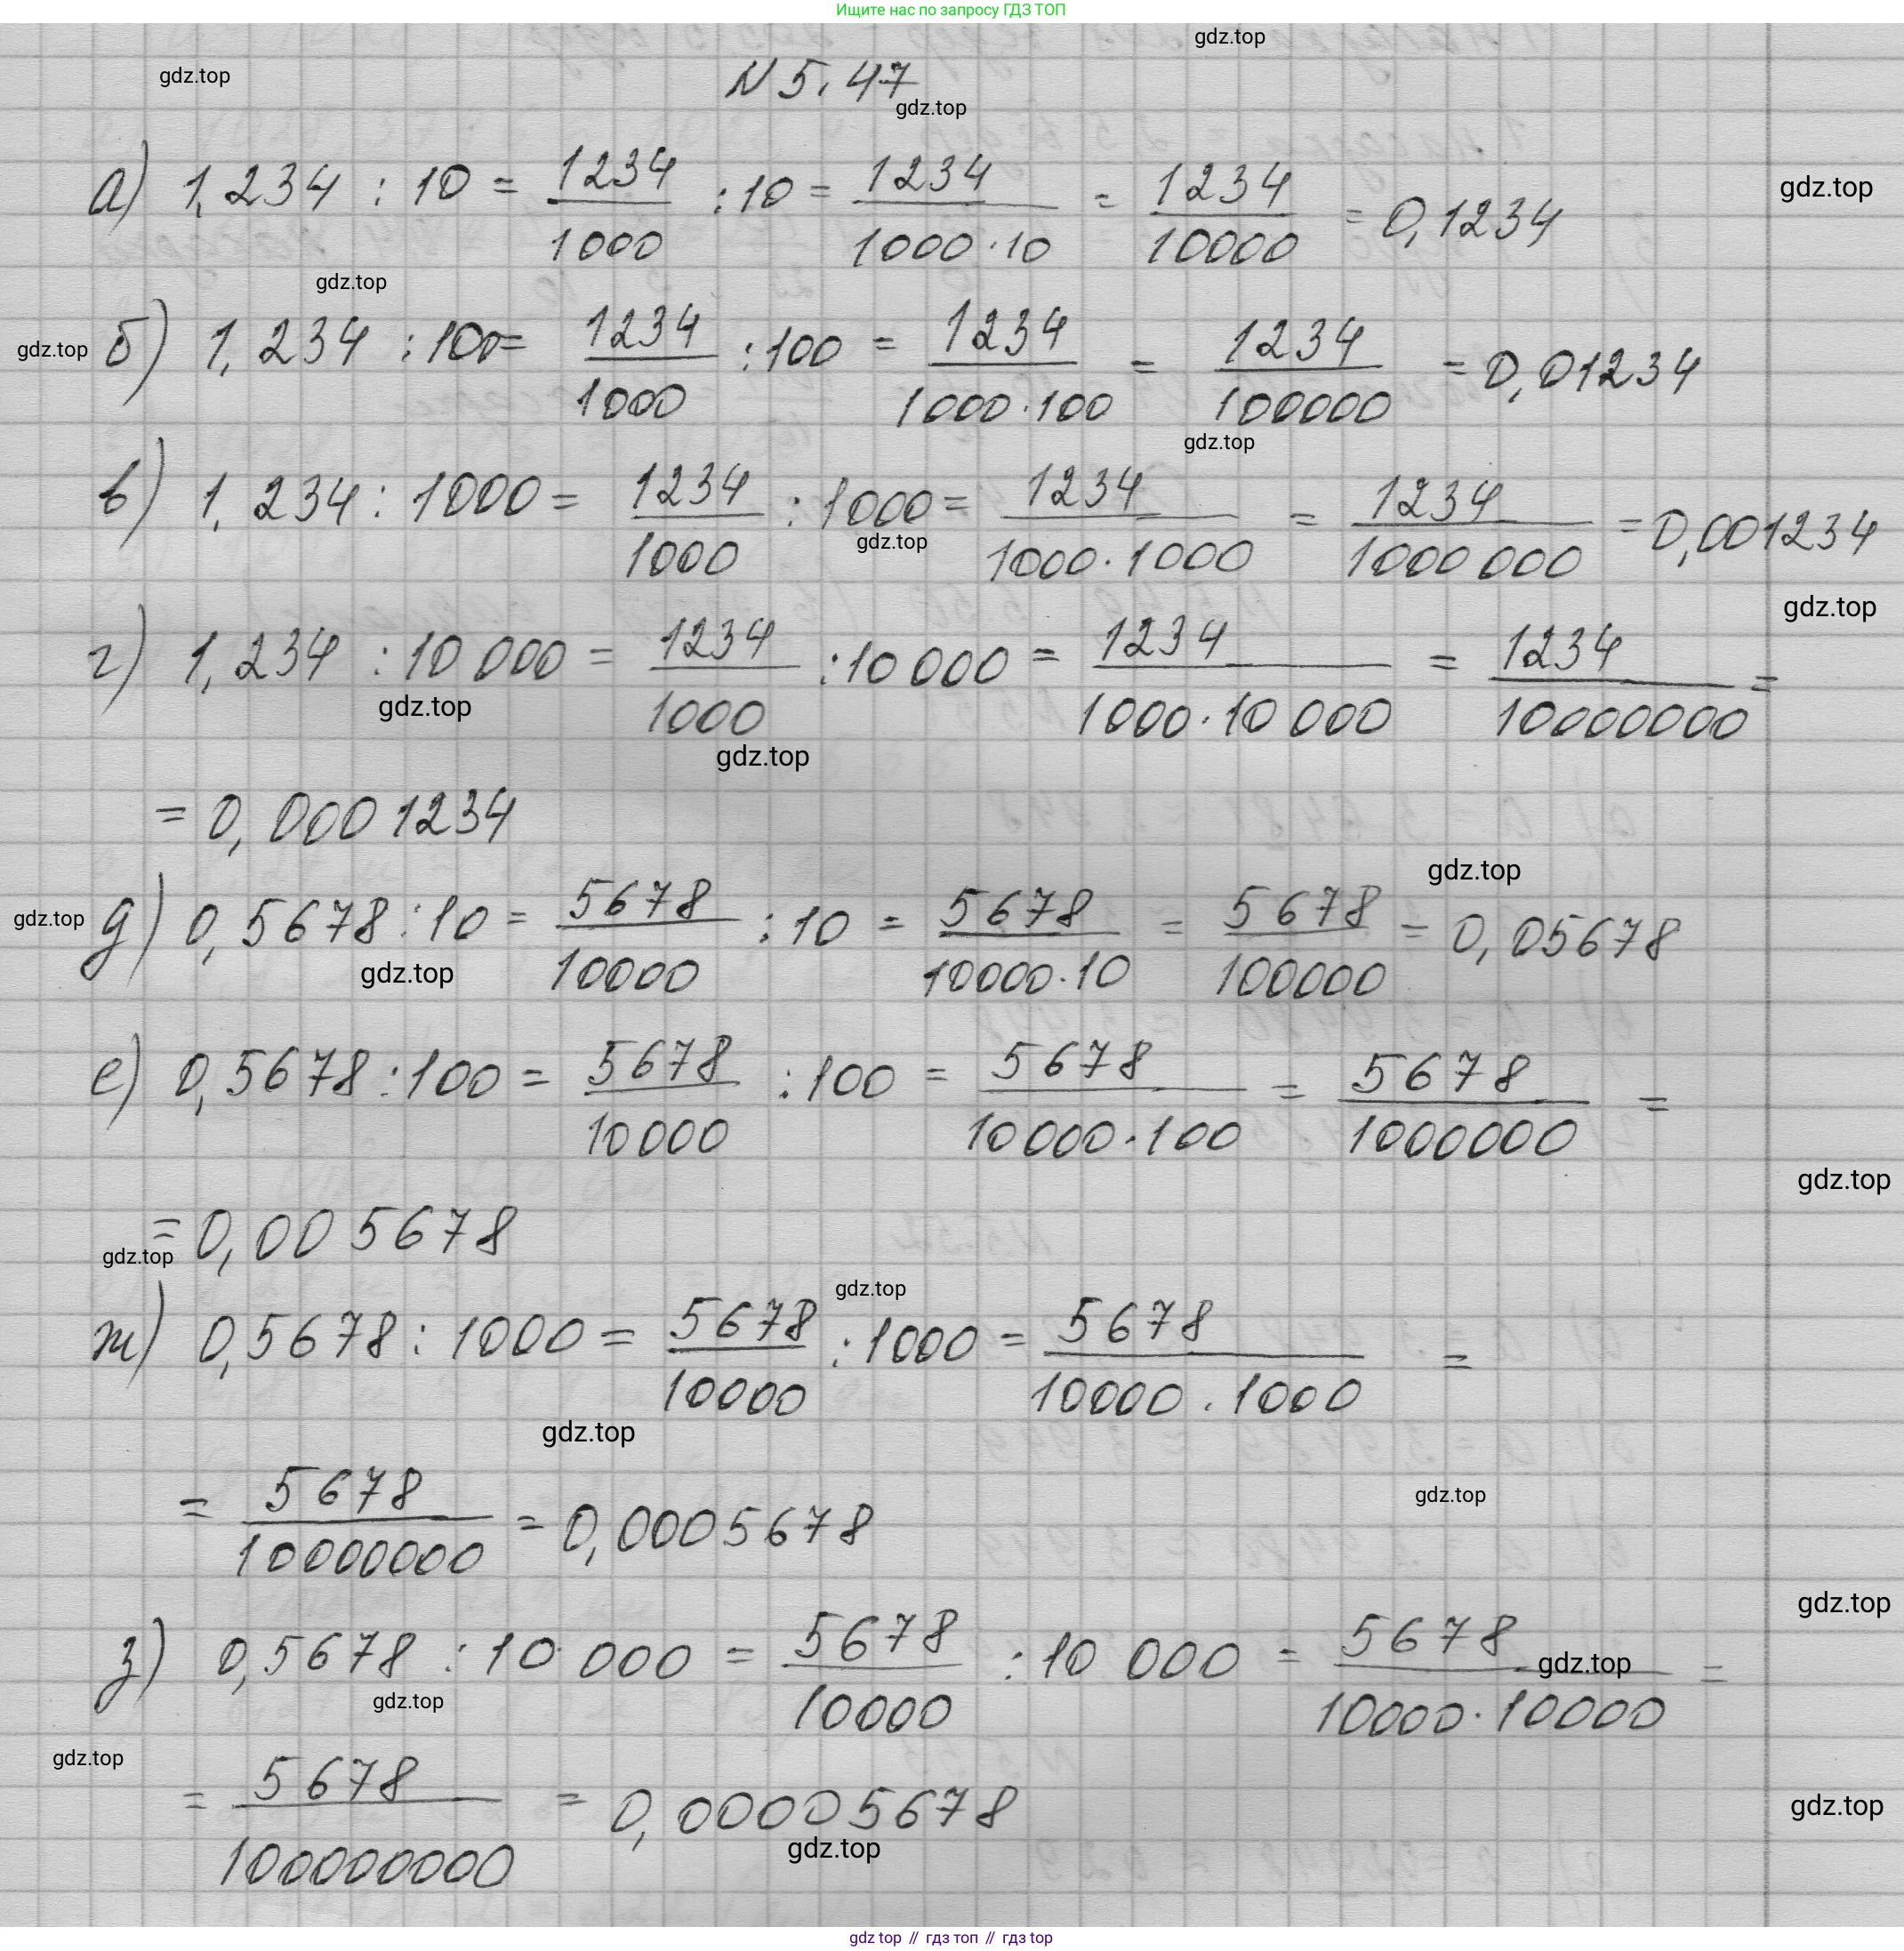 Ищите нас по запросу ГДЗ ТОП
gdz.top
gdz.top
N 5.47
gdz.top
а) 1,234 : 10 = 1234/1000 : 10 = 1234/(1000·10) = 1234/10000 = 0,1234
gdz.top
gdz.top
gdz.top
б) 1,234 : 100 = 1234/1000 : 100 = 1234/(1000·100) = 1234/100000 = 0,01234
gdz.top
в) 1,234 : 1000 = 1234/1000 : 1000 = 1234/(1000·1000) = 1234/1000 000 = 0,001234
gdz.top
gdz.top
г) 1,234 : 10 000 = 1234/1000 : 10 000 = 1234/(1000·10 000) = 1234/10000000 =
gdz.top
gdz.top
= 0,0001234
gdz.top
gdz.top
д) 0,5678 : 10 = 5678/10000 : 10 = 5678/(10000·10) = 5678/100000 = 0,05678
gdz.top
е) 0,5678 : 100 = 5678/10000 : 100 = 5678/(10000·100) = 5678/1000000 =
gdz.top
= 0,005678
gdz.top
gdz.top
ж) 0,5678 : 1000 = 5678/10000 : 1000 = 5678/(10000·1000) =
gdz.top
gdz.top
= 5678/10000000 = 0,0005678
gdz.top
з) 0,5678 : 10 000 = 5678/10000 : 10 000 = 5678/(10000·10000) =
gdz.top
gdz.top
gdz.top
= 5678/100000000 = 0,00005678
gdz.top
gdz.top
gdz top // гдз топ // гдз top